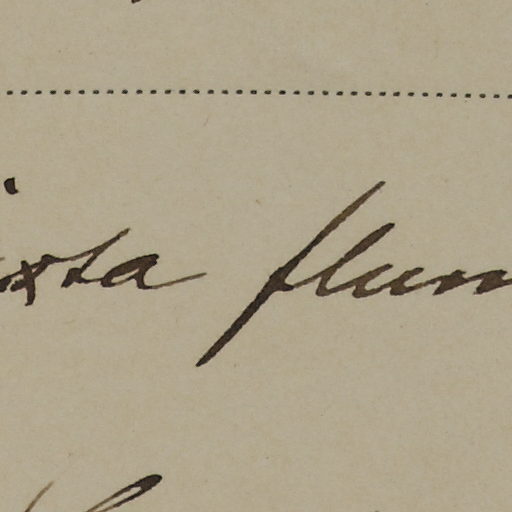 ixta flum